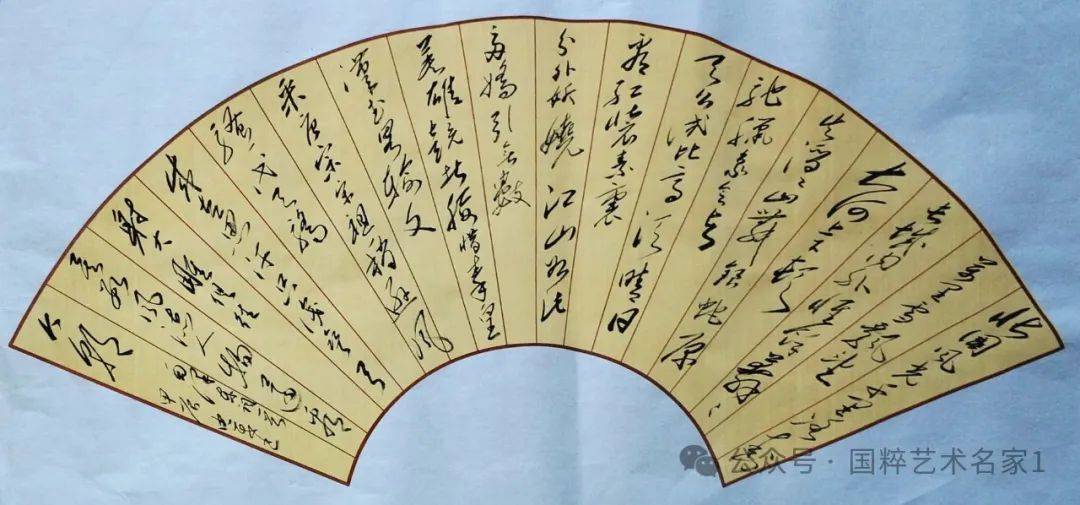 北国
风光千里冰封
万里雪飘望
长城内外惟余莽々
大河上下顿
失滔々山舞银蛇原
驰腊象欲与
天公试比高须晴日
看红装素裹
分外妖娆江山如此
多娇引无数
英雄竞折腰惜秦皇
汉武略输文
采唐宗宋祖稍逊风
骚一代天骄
成吉思汗只识弯弓
射大雕俱往
矣数风流人物还看
今朝
公众号·国粹艺术名家1